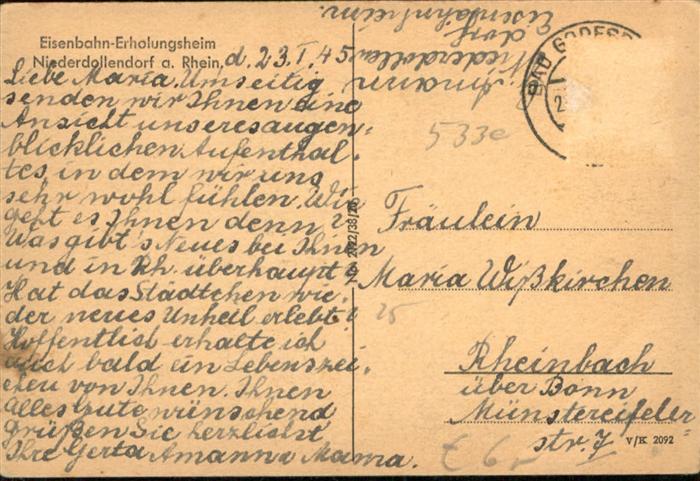 Eisenbahn-Erholungsheim
Niederdollendorf a. Rhein, d. 23.I.45.
Liebe Maria. Umseitig
senden wir Ihnen eine
Ansicht unseres augen-
blicklichen Aufenthal-
tes, in dem wir uns
sehr wohl fühlen. Wie
geht es Ihnen denn?
Was gibt's Neues bei Ihnen
und in Rh. überhaupt?
Hat das Städtchen wie-
der neues Unheil erlebt?
Hoffentlich erhalte ich
auch bald ein Lebenszei-
chen von Ihnen. Ihnen
alles Gute wünschend
grüßen Sie herzlichst
Ihre Gerta Amann u. Mama.
Amann
Niederdollen
dorf
Eisenbahnheim
BAD GODESB
533e
Fräulein
Maria Wißkirchen
25
Rheinbach
über Bonn
Münstereifeler-
str. 7
V/K 2092
€ 6,-